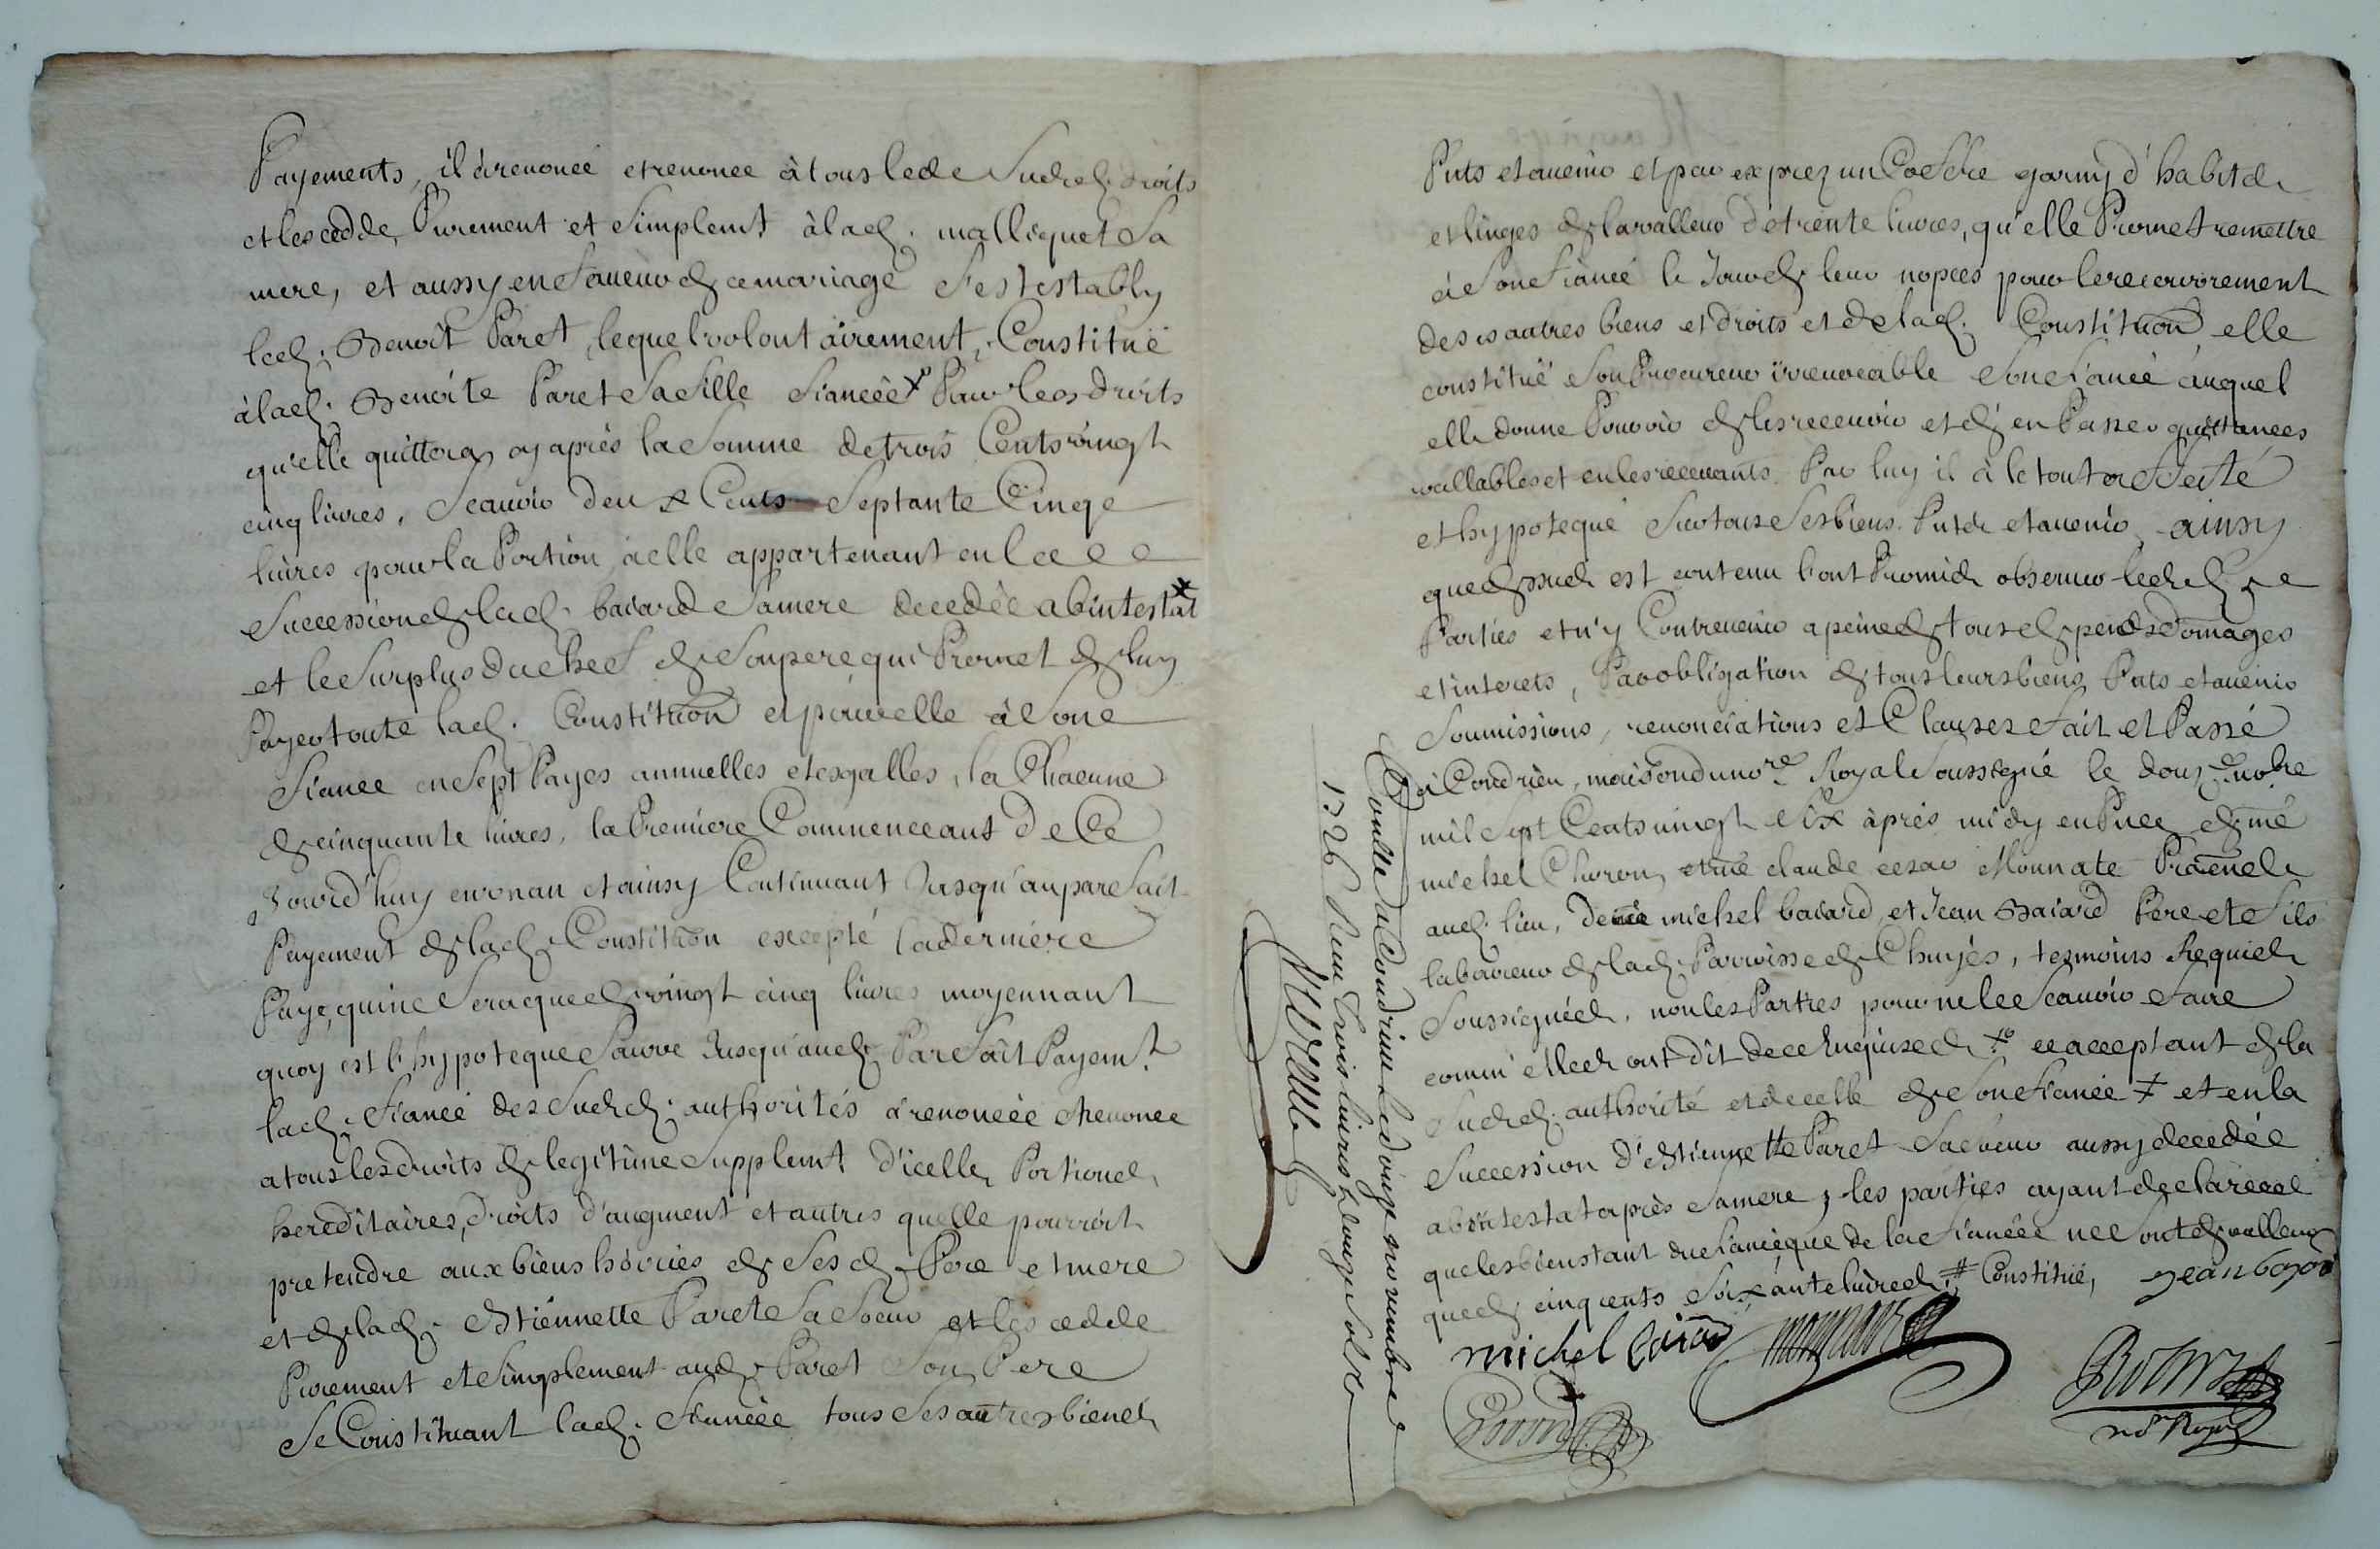 Payements, il à renoncé et renonce à tous lesd. Susd. droits
et les cedde, Purement et Simplemt à lad. malliquet Sa
mere, et aussy en faveur de ce mariage S'est establly
led. Benoît Paret, lequel volontairement, Constitue
à lad. Benoite Paret Sa fille fiancée x Pour les droits
qu'elle quittera cy après la Somme de trois Cents vingt
cinq livres, Scavoir deux Cents Septante Cinq
livres pour la Portion à elle appartenant en la
Succession de lad. baiard Sa mere decedée abintestat x
et le Surplus du chef de Son pere qui Promet de luy
Payer toute lad. Constitution et pour elle à Son
fiancé en Sept Payes annuelles et esgalles, la Chacune
de cinquante livres, la Premiere Commenceant de Ce
Jourd'huy en un an et ainsy Continuant Jusqu'au parfait
Payement de lad. Constitution excepté la derniere
Paye, qui ne Sera que de vingt cinq livres moyennant
quoy est l'hypoteque Sauve Jusqu'aud. Parfait Payemt.
lad. fiancée des Susd. authorités à renoncée et renonce
a tous les droits de legitime Supplemt d'icelle, Portions
hereditaires, droits d'augment et autres quelle pourroit
pretendre aux biens hoiries de Ses d. Pere et mere
et de lad. Estiennette Paret Sa Soeur et les cedde
Purement et Simplement aud. Paret Son Pere
Se Constituant lad. fiancée tous Ses autres biens
Pnts et avenir et par exprez un Coffre garny d'habits
et linges de la valleur de trente livres, qu'elle Promet remettre
à Son fiancé le Jour de leur nopces pour le recouvrement
de ses autres biens et droits et de lad. Constitution elle
constitué Son Procureur irrevocable Son fiancé auquel
elle donne Pouvoir de les recevoir et d'en Passer quittances
vallables et en les recevants Par luy il à le tout affecté
et hypotequé Sur tous Ses biens Pnts et avenir, ainsy
que dessus est contenu l'ont Promis observer lesd.
Parties et n'y Contrevenir a peine de tous despends domages
et interets, Par obligation de tous leurs biens Pnts et avenir
Soumissions, renonciations et Clauses fait et Passé
à Condrieu, maison du nore Royal Soussigné le douze nobre
mil Sept Cents vingt Six après midy en Pnce de me
michel Choron, et me claude cesar Monnate Praticiens
aud. lieu, de michel baiard et Jean Baiard Pere et fils
laboureur de lad. Parroisse de Chuyés, tesmoins Requis
Soussignés, non les Parties pour ne le Scavoir faire
comm'elles ont dit de ce Enquises x ce acceptant de la
Susd. authorité et de celle de Son fiancé x et en la
Succession d'Estiennette Paret Sa Soeur aussy decedée
abintestat après Sa mere, les parties ayant declaré
que les biens tant du fiancé que de la fiancée ne Sont de valleur
que de cinq cents Soixante livres # Constitué, jean bayar
michel baiard
Choron
no Royal
Controllé a Condrieu le douze novembre
1726 Reçu trois livres douze Sols